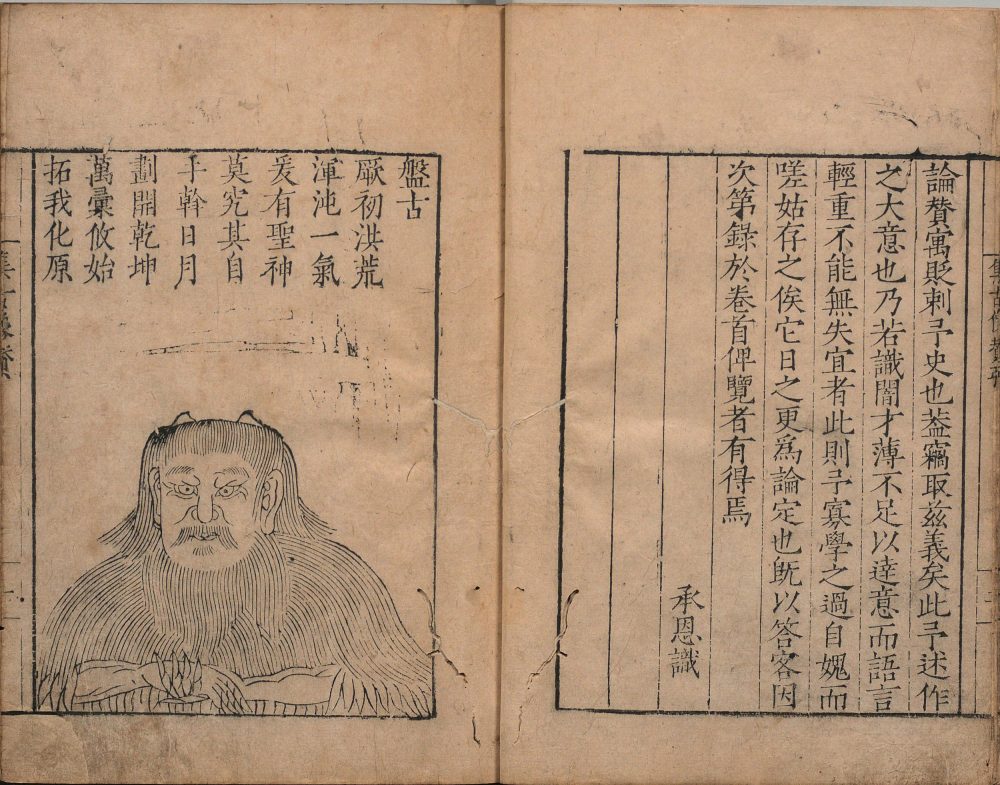 論贊寓貶刺予史也葢竊取茲義矣此予述作
之大意也乃若識闇才薄不足以達意而語言
輕重不能無失宜者此則予寡學之過自媿而
嗟姑存之俟它日之更爲論定也旣以答客因
次第錄於卷首俾覽者有得焉
承恩識
盤古
厥初洪荒
渾沌一氣
爰有聖神
莫究其自
手幹日月
劃開乾坤
萬彙攸始
拓我化原